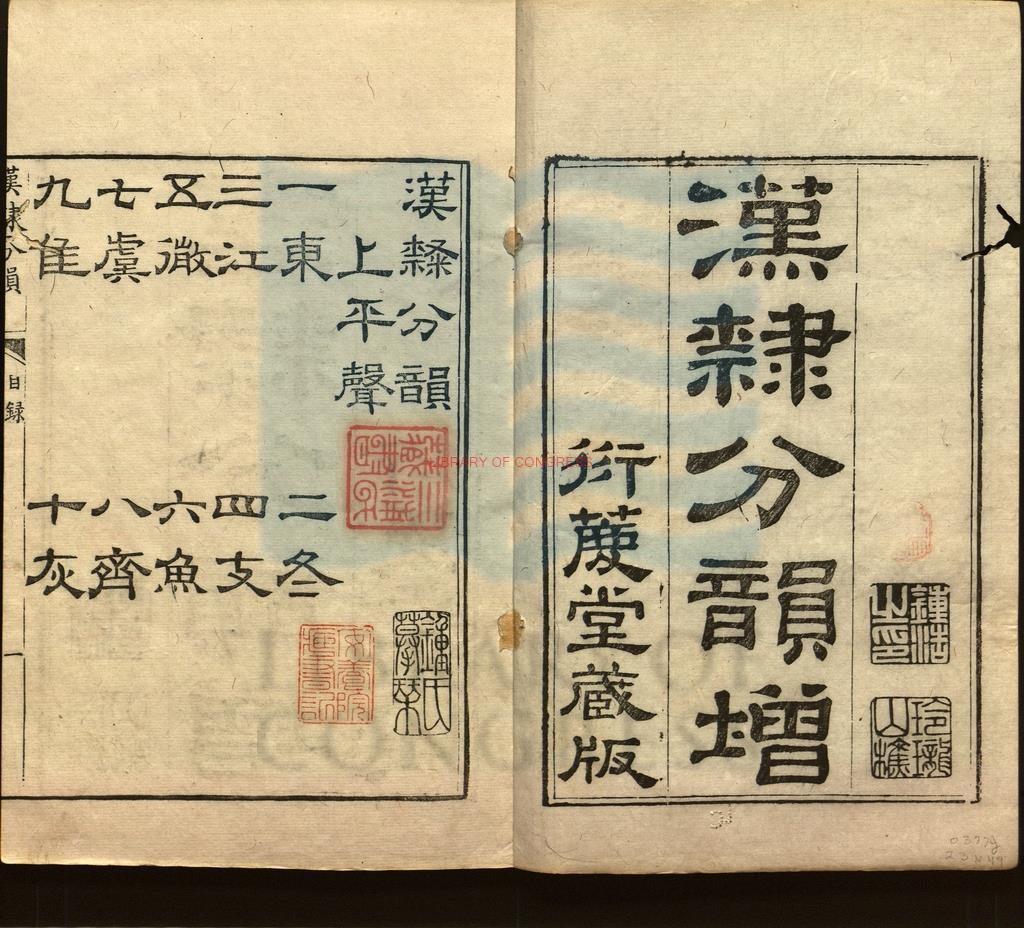 漢隸分韻增
衍䕌堂藏版
鍾浩之印
玲瓏山樵
漢隸分韻
上平聲
一東 二冬
三江 四支
五微 六魚
七虞 八齊
九佳 十灰
漢隸分韻
目録
一
LIBRARY OF CONGRESS